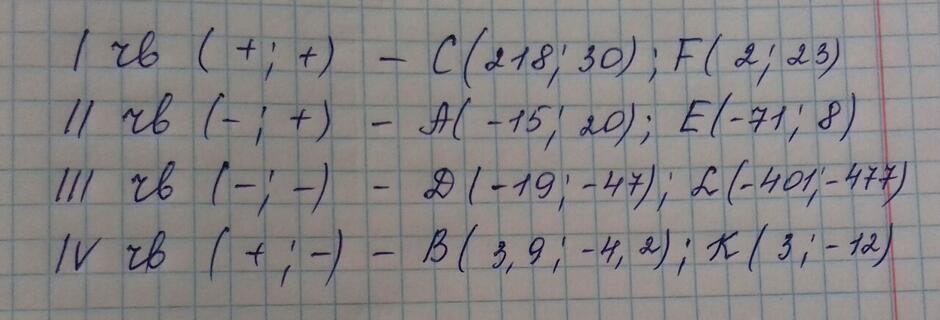 I чв (+; +) – C(218; 30); F(2; 23)
II чв (-; +) – A(-15; 20); E(-71; 8)
III чв (-; -) – D(-19; -47); L(-401; -477)
IV чв (+; -) – B(3,9; -4,2); K(3; -12)